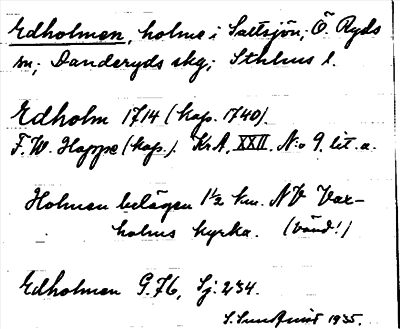 Edholmen, holme i Saltsjön; Ö. Ryds
sn; Danderyds skg; Sthlms l.
Edholm 1714 (kop. 1740).
F. W. Hoppe (kop.). Kr.A. XXII. N:o 9. lit. a.
Holmen belägen 1½ km. NV Vax-
holms kyrka. (vänd!)
Edholmen G.76, Sj. 234.
S. Sundquist 1935.